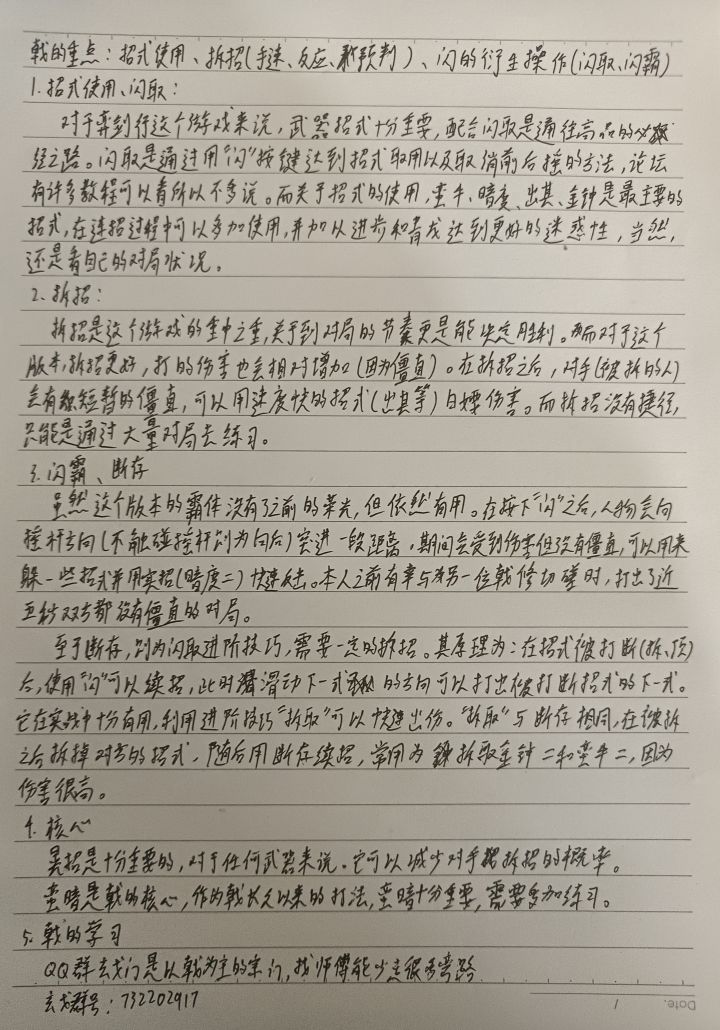 戟的重点：招式使用、拆招(手速、反应、预判)、闪的衍生操作(闪取、闪霸)
1. 招式使用、闪取：
对于弈剑行这个游戏来说，武器招式十分重要，配合闪取是通往高品的必
经之路。闪取是通过用“闪”按键达到招式取用以及取消前后摇的方法，论坛
有许多教程可以看所以不多说。而关于招式的使用，蛮牛、暗度、出其、金钟是最主要的
招式，在连招过程中可以多加使用，并加以进步和青龙达到更好的迷惑性，当然，
还是看自己的对局状况。
2. 拆招：
拆招是这个游戏的重中之重，关于到对局的节奏更是能决定胜利。而对于这个
版本，拆招更好，打的伤害也会相对增加(因为僵直)。在拆招之后，对手(被拆的人)
会有短暂的僵直，可以用速度快的招式(出其等)白嫖伤害。而拆招没有捷径，
只能是通过大量对局去练习。
3. 闪霸、断存
虽然这个版本的霸体没有了之前的荣光，但依然有用。在按下“闪”之后，人物会向
摇杆方向(不触碰摇杆则为向后)突进一段距离，期间会受到伤害但没有僵直，可以用来
躲一些招式并用实招(暗度二)快速反击。本人之前有幸与另一位戟修切磋时，打出了近
五秒双方都没有僵直的对局。
至于断存，则为闪取进阶技巧，需要一定的拆招。其原理为：在招式被打断(拆、顶)
后，使用“闪”可以续招，此时滑动下一式的方向可以打出被打断招式的下一式。
它在实战中十分有用，利用进阶技巧“拆取”可以快速出伤。“拆取”与断存相同，在被拆
之后拆掉对方的招式，随后用断存续招，常用为拆取金钟二和蛮牛二，因为
伤害很高。
4. 核心
晃招是十分重要的，对于任何武器来说。它可以减少对手拆招的概率。
蛮暗是戟的核心，作为戟长久以来的打法，蛮暗十分重要，需要多加练习。
5. 戟的学习
QQ群玄戈门是以戟为主的宗门，找师傅能少走很多弯路
玄戈群号：732202917
Date. /